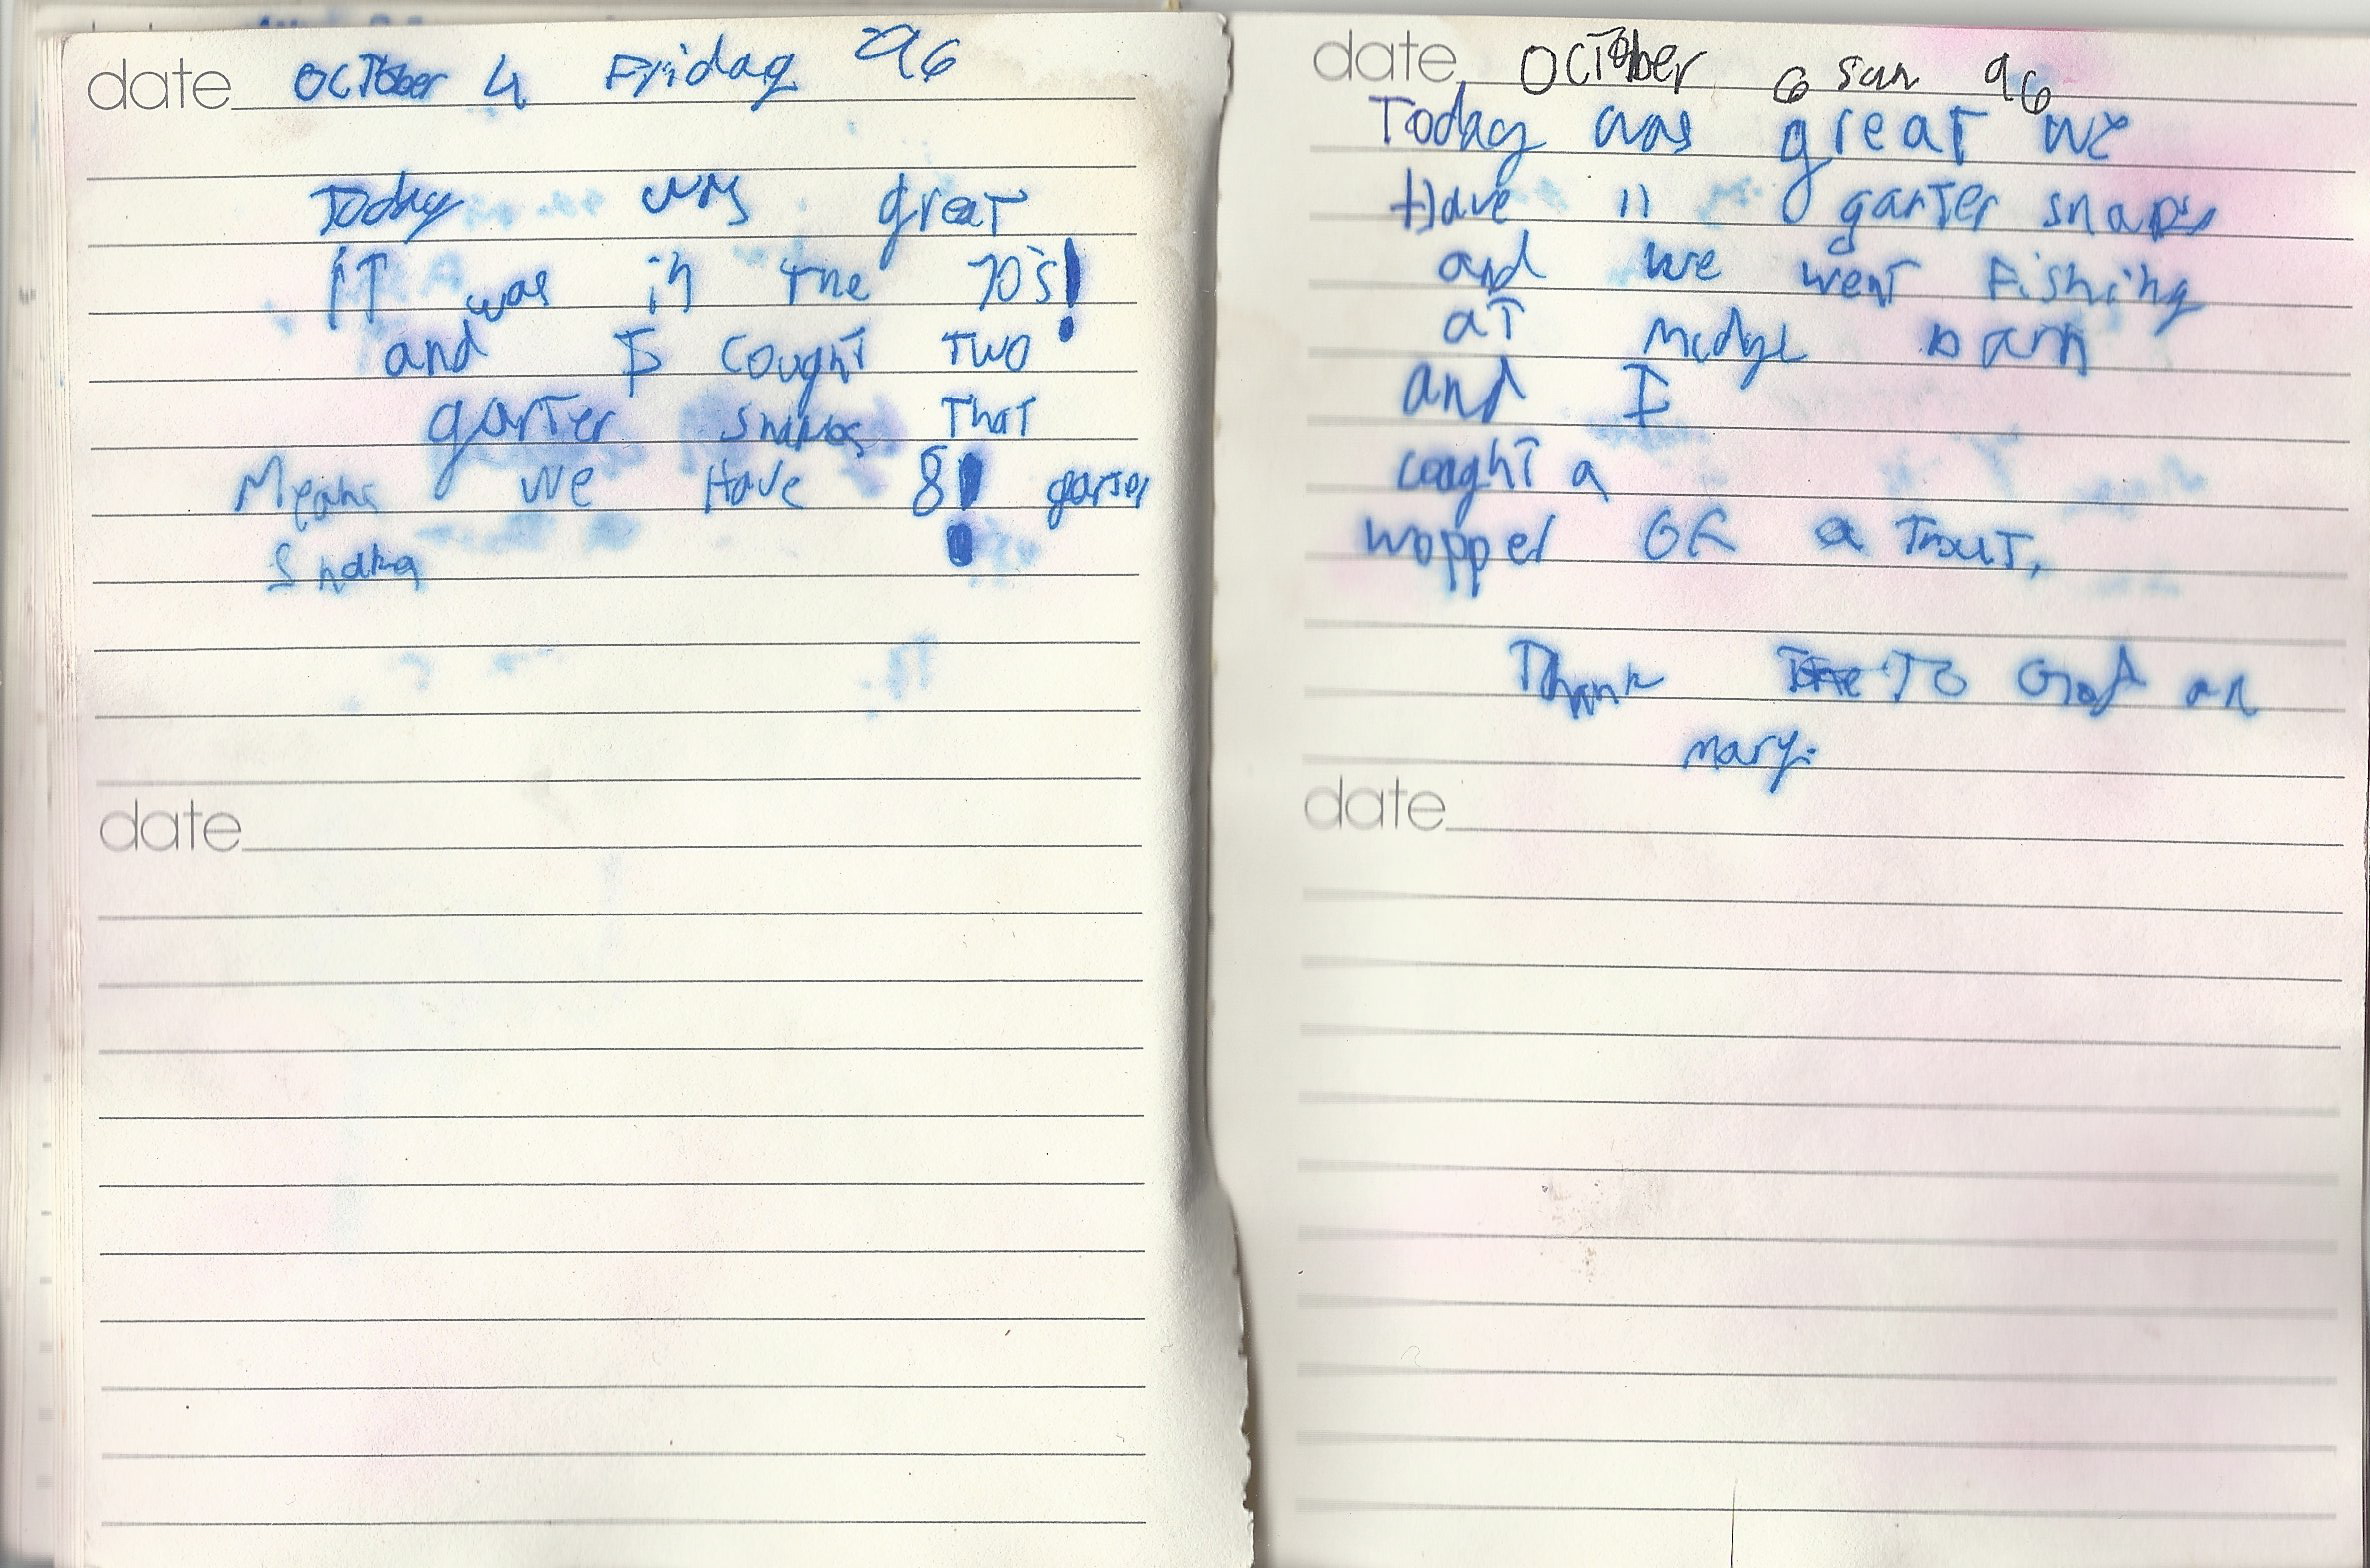 date October 4 Friday 96
Today was great
iT was in the 70's!
and I cought Two
garTer snakes ThaT
Means we Have 8! garter
Snaka
date
date October 6 sun 96
Today was greaT we
Have 11 garTer snaps
and we wenT Fishing
aT
and I
coughT a
wopper OF a TrouT,
Thank To God an
mary.
date